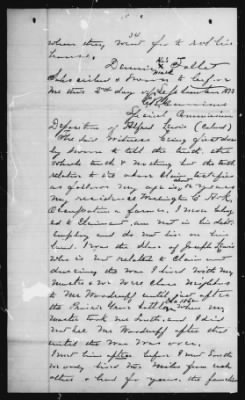 34
where they went for to rob his
house.
Dennis his Talbot
mark
Subscribed & Sworn to before
me this 2nd day of September 1873
Special Commissioner
Deposition of Alfred Lewis (Colored)
The said witness being first duly
sworn to tell the truth, the
whole truth & nothing but the truth
relative to the above Claim testifies
as follows My age is about years
my residence Washington Co
Occupation a farmer. I
to Claimant am not in his
employ and do not live on his
land. I was the slave of Joseph Lewis
who is not related to Claimant
during the war I lived with my
master & we were close neighbors
to Mr Woodruff until just after
the Prairie Grove battle when my
master took me South, and I did
not see Mr Woodruff after that
until the war was over.
I met him often before I went South
we only lived two miles from each
other & had for years, the families